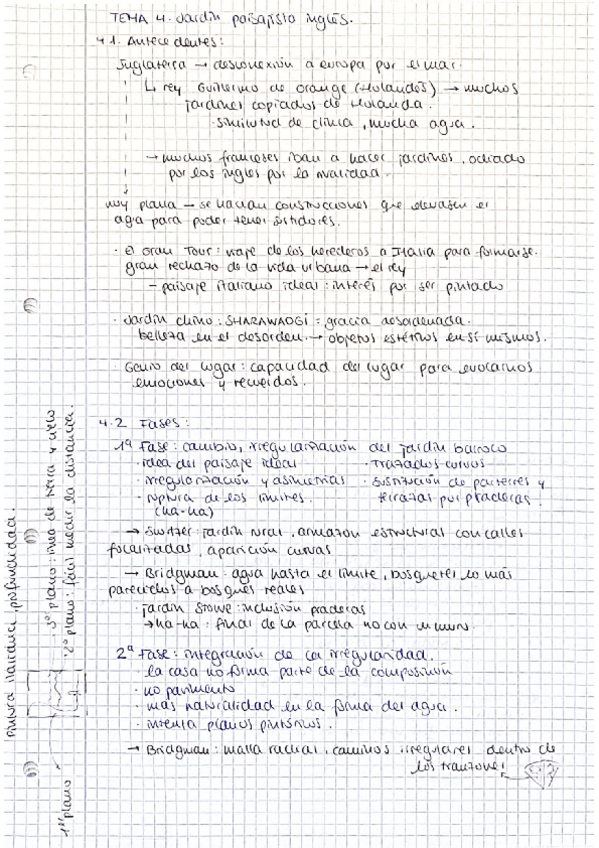 TEMA 4. Jardín paisajista inglés.
4.1. Antecedentes:
Inglaterra → desconexión a europa por el mar.
↳ rey Guillermo de orange (Holandés) → muchos
jardines copiados de Holanda.
· similitud de clima, mucha agua.
→ muchos franceses iban a hacer jardines, odiado
por los ingles por la rivalidad.
muy plana → se hacían construcciones que elevasen el
agua para poder tener surtidores.
· El Gran Tour: viaje de los herederos a Italia para formarse.
gran rechazo de la vida urbana → el rey
- paisaje italiano ideal: interés por ser pintado
· Jardín chino: SHARAWADGI = gracia desordenada.
belleza en el desorden. → objetos estéticos en sí mismos.
· Genio del lugar: capacidad del lugar para evocarnos
emociones y recuerdos.
4.2 Fases:
1ª Fase: cambio, irregularización del jardín barroco
· idea del paisaje ideal · Trazados curvos
· irregularización y asimetrías · sustitución de parterres y
· ruptura de los límites. terrazas por praderas.
(ha-ha)
→ Switzer: jardín rural, armazón estructural con calles
focalizadas, aparición curvas
→ Bridgman: agua hasta el límite, bosquetes lo más
parecidos a bosques reales
· jardín Stowe: inclusión praderas
→ ha-ha: final de la parcela no con un muro.
2ª Fase: integración de la irregularidad.
· la casa no forma parte de la composición
· no pavimento
· más naturalidad en la forma del agua.
· intenta planos pictóricos.
→ Bridgman: malla radial, caminos irregulares dentro de
los tranzones
Pintura italiana, profundidad.
· 3º plano: línea de tierra y cielo
· 2º plano: fácil medir la distancia.
1er plano